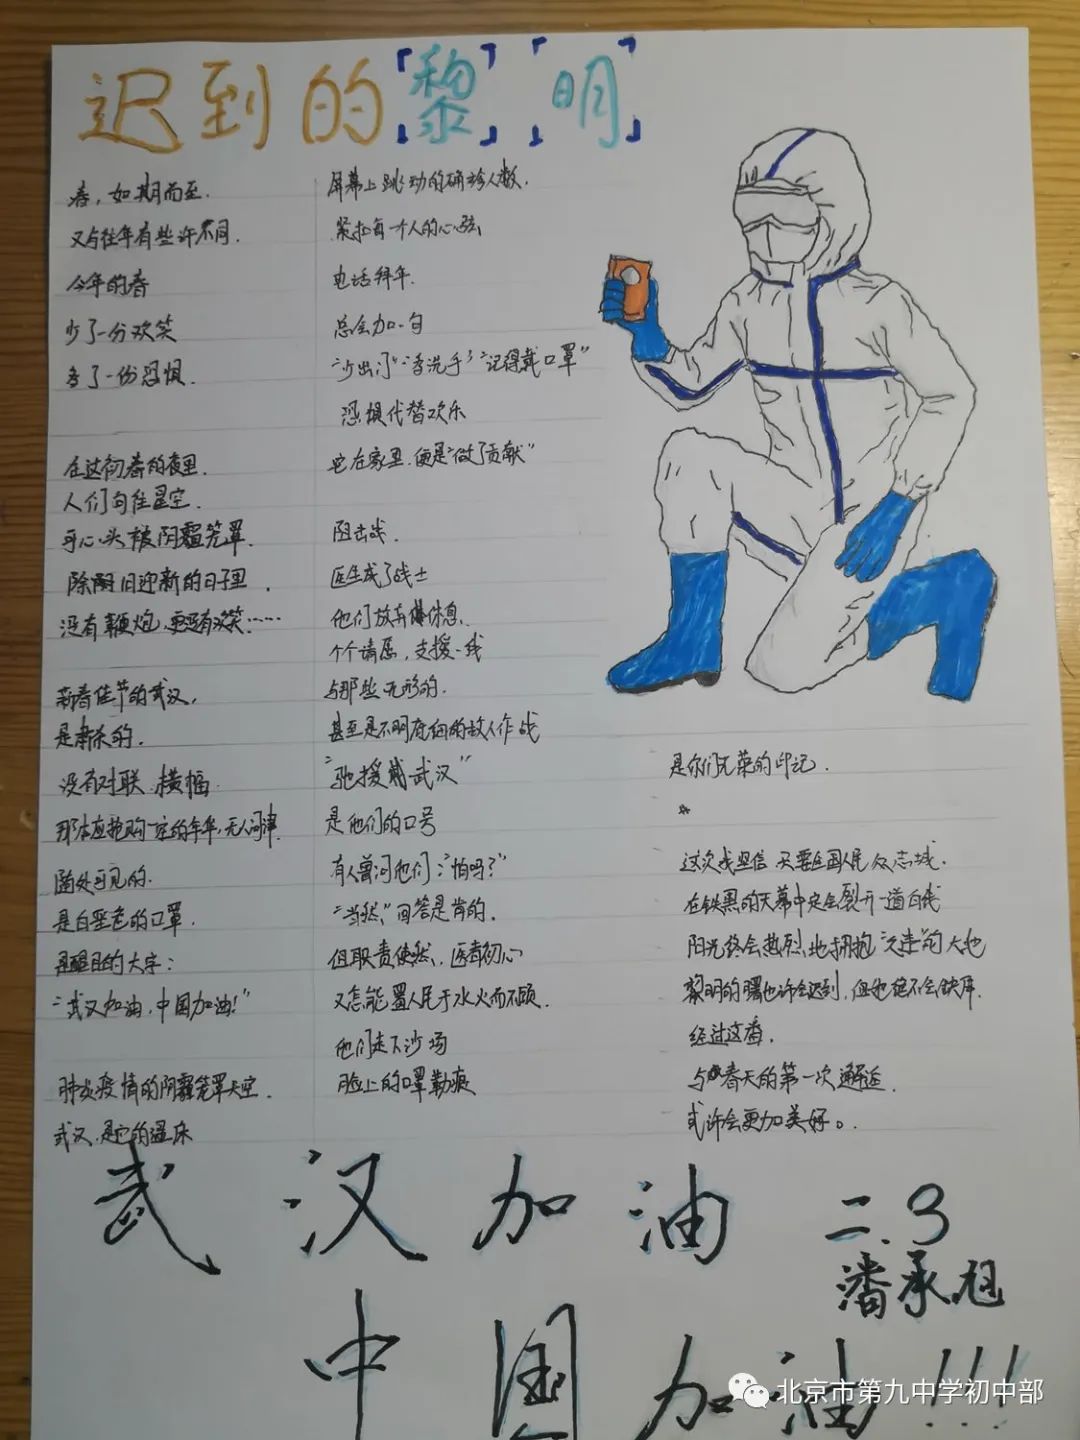 迟到的「黎」「明」
春，如期而至.
又与往年有些许不同.
今年的春
少了一分欢笑
多了一份恐惧.
在这初春的夜里.
人们向往星空.
可心头被阴霾笼罩.
除旧迎新的日子里.
没有鞭炮,更没有欢笑……
新春佳节的武汉,
是肃杀的.
没有对联.横幅
那本应抢购一空的年华,无人问津.
随处可见的.
是白垩色的口罩.
是醒目的大字:
“武汉加油,中国加油!”
肺炎疫情的阴霾笼罩天空.
武汉,是它的温床
屏幕上跳动的确诊人数.
紧扣每一个人的心弦
电话拜年.
总会加一句
“少出门”“多洗手”“记得戴口罩”
恐惧代替欢乐
宅在家里.便是“做了贡献”
阻击战.
医生成了战士
他们放弃休息.
个个请愿,支援一线
与那些无形的.
甚至是不明底细的敌人作战
“驰援武汉”
是他们的口号
有人曾问他们:“怕吗?”
“当然,”回答是肯的.
但职责使然,医者初心
又怎能置人民于水火而不顾.
他们走下沙场
脸上的口罩勒痕
是你们光荣的印记.
*
这次我坚信 只要全国人民众志城.
在铁黑的天幕中定会裂开一道白线
阳光终会热烈地拥抱“久违”的大地
黎明的曙也许会迟到,但他绝不会缺席.
经过这番.
与春天的第一次邂逅.
或许会更加美好。.
武汉加油
二.3
潘承旭
中国加油!!!
北京市第九中学初中部